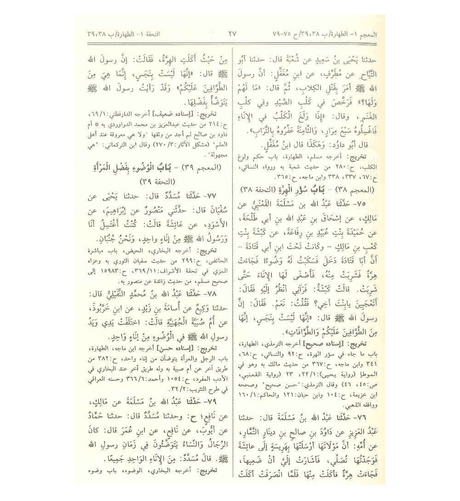 المعجم ١- الطهارة/ب ٣٩،٣٨/ح ٧٥-٧٩
٢٧
التحفة ١- الطهارة/ب ٣٩،٣٨
حدثنا يحيى بن سعيد عن شعبة قال: حدثنا أبو
التياح عن مطرف، عن ابن مغفل: أن رسول
الله ﷺ أمر بقتل الكلاب، ثم قال: «ما لهم
ولها؟» فرخص في كلب الصيد وفي كلب
الغنم، وقال: «إذا ولغ الكلب في الإناء
فاغسلوه سبع مرار، والثامنة عفروه بالتراب».
قال أبو داود: وهكذا قال ابن مغفل.
تخريج: أخرجه مسلم، الطهارة، باب حكم ولوغ
الكلب، ح: ٢٨٠ من حديث شعبة به ورواه النسائي،
ح: ٦٧، ٣٣٧، ٣٣٨ وابن ماجه، ح: ٣٦٥.
(المعجم ٣٨) - باب سؤر الهرة (التحفة ٣٨)
٧٥- حدثنا عبد الله بن مسلمة القعنبي عن
مالك، عن إسحاق بن عبد الله بن أبي طلحة،
عن حميدة بنت عبيد بن رفاعة، عن كبشة بنت
كعب بن مالك - وكانت تحت ابن أبي قتادة -
أن أبا قتادة دخل فسكبت له وضوءا فجاءت
هرة فشربت منه، فأصغى لها الإناء حتى
شربت، قالت كبشة: فرآني أنظر إليه فقال:
أتعجبين يا بنت أخي؟ فقلت: نعم. فقال: إن
رسول الله ﷺ قال: «إنها ليست بنجس، إنها
من الطوافين عليكم والطوافات».
تخريج: [إسناده صحيح] أخرجه الترمذي، الطهارة،
باب ما جاء في سؤر الهرة، ح: ٩٢ والنسائي، ح: ٦٨،
٣٤١ وابن ماجه، ح: ٣٦٧ من حديث مالك به وهو في
الموطأ (رواية يحيى): ١/ ٢٢، ٢٣ (رواية القعنبي،
ص: ٤٥، ٤٦) وقال الترمذي: "حسن صحيح" وصححه
ابن خزيمة، ح: ١٠٤ وابن حبان: ١٢١ والحاكم: ١/ ١٦٠
ووافقه الذهبي.
٧٦- حدثنا عبد الله بن مسلمة: حدثنا
عبد العزيز عن داود بن صالح بن دينار التمار،
عن أمه: أن مولاتها أرسلتها بهريسة إلى عائشة
فوجدتها تصلي، فأشارت إلي أن ضعيها،
فجاءت هرة فأكلت منها فلما انصرفت أكلت
من حيث أكلت الهرة، فقالت: إن رسول الله
ﷺ قال: «إنها ليست بنجس، إنما هي من
الطوافين عليكم» وقد رأيت رسول الله ﷺ
يتوضأ بفضلها.
تخريج: [إسناده ضعيف] أخرجه الدارقطني: ١/ ٦٩،
ح: ٢١٤ من حديث عبدالعزيز بن محمد الدراوردي به
(المعجم ٣٩) - باب الوضوء بفضل المرأة
(التحفة ٣٩)
٧٧- حدثنا مسدد قال: حدثنا يحيى عن
سفيان قال: حدثني منصور عن إبراهيم، عن
الأسود، عن عائشة قالت: كنت أغتسل أنا
ورسول الله ﷺ من إناء واحد، ونحن جنبان.
تخريج: أخرجه البخاري، الحيض، باب مباشرة
الحائض، ح: ٢٩٩ من حديث سفيان الثوري به وعزاه
المزي في تحفة الأشراف: ١١/ ٣٦٩، ح: ١٥٩٨٣ إلى
صحيح مسلم، من حديث زائدة عن منصور به.
٧٨- حدثنا عبد الله بن محمد النفيلي قال:
حدثنا وكيع عن أسامة بن زيد، عن ابن خربوذ،
عن أم صبية الجهنية قالت: اختلفت يدي ويد
رسول الله ﷺ في الوضوء من إناء واحد.
تخريج: [إسناده حسن] أخرجه ابن ماجه، الطهارة،
باب الرجل والمرأة يتوضآن من إناء واحد، ح: ٣٨٢ من
طريق آخر عن أم صبية به وله طريق آخر عند البخاري في
الأدب المفرد، ح: ١٠٥٤ وأحمد: ٦/ ٣٦٦ وحسنه العراقي
في طرح التثريب: ٢/ ٣٤.
٧٩- حدثنا عبد الله بن مسلمة عن مالك،
عن نافع؛ ح: وحدثنا مسدد قال: حدثنا حماد
عن أيوب، عن نافع، عن ابن عمر قال: كان
الرجال والنساء يتوضؤون في زمان رسول الله
ﷺ، قال مسدد: من الإناء الواحد جميعا.
تخريج: أخرجه البخاري، الوضوء، باب وضوء